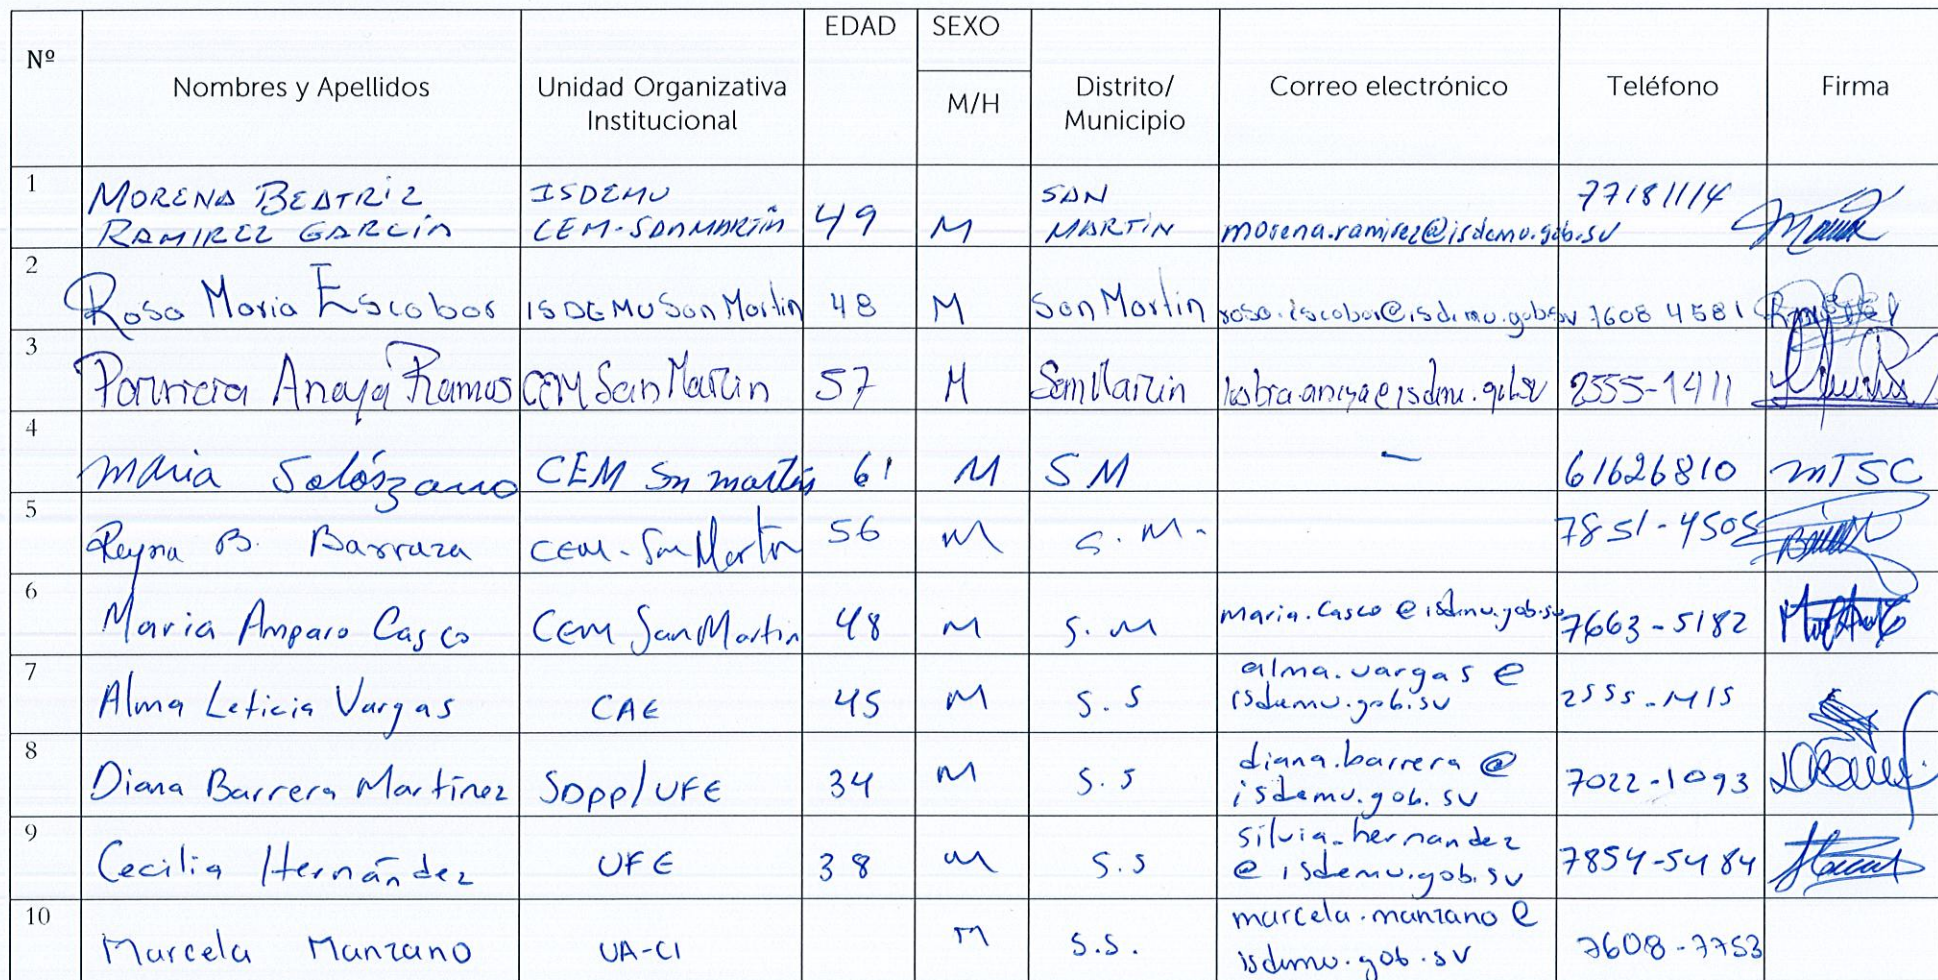 Nº Nombres y Apellidos Unidad Organizativa Institucional EDAD SEXO M/H Distrito/ Municipio Correo electrónico Teléfono Firma
1 MORENA BEATRIZ RAMIREZ GARCÍA ISDEMU CEM-SAN MARTÍN 49 M SAN MARTÍN morena.ramirez@isdemu.gob.sv 77181114
2 Rosa Maria Escobar ISDEMU San Martin 48 M San Martin rosa.escobar@isdemu.gob.sv 7608 4581
3 Anaya Ramos CEM San Martin 57 M San Martin 2555-1411
4 Maria Solórzano CEM Sn martín 61 M SM — 61626810 MTSC
5 Reyna B. Barraza CEM-San Martin 56 M S.M. 7851-4505
6 Maria Amparo Casco CEM San Martin 48 M S.M maria.casco@isdemu.gob.sv 7663-5182
7 Alma Leticia Vargas CAE 45 M S.S alma.vargas@ isdemu.gob.sv
8 Diana Barrera Martínez SDPP/UFE 34 M S.S diana.barrera@ isdemu.gob.sv 7022-1093
9 Cecilia Hernández UFE 38 M S.S silvia.hernandez @isdemu.gob.sv 7854-5484
10 Marcela Manzano UA-CI M S.S. marcela.manzano@ isdemu.gob.sv 7608-7753